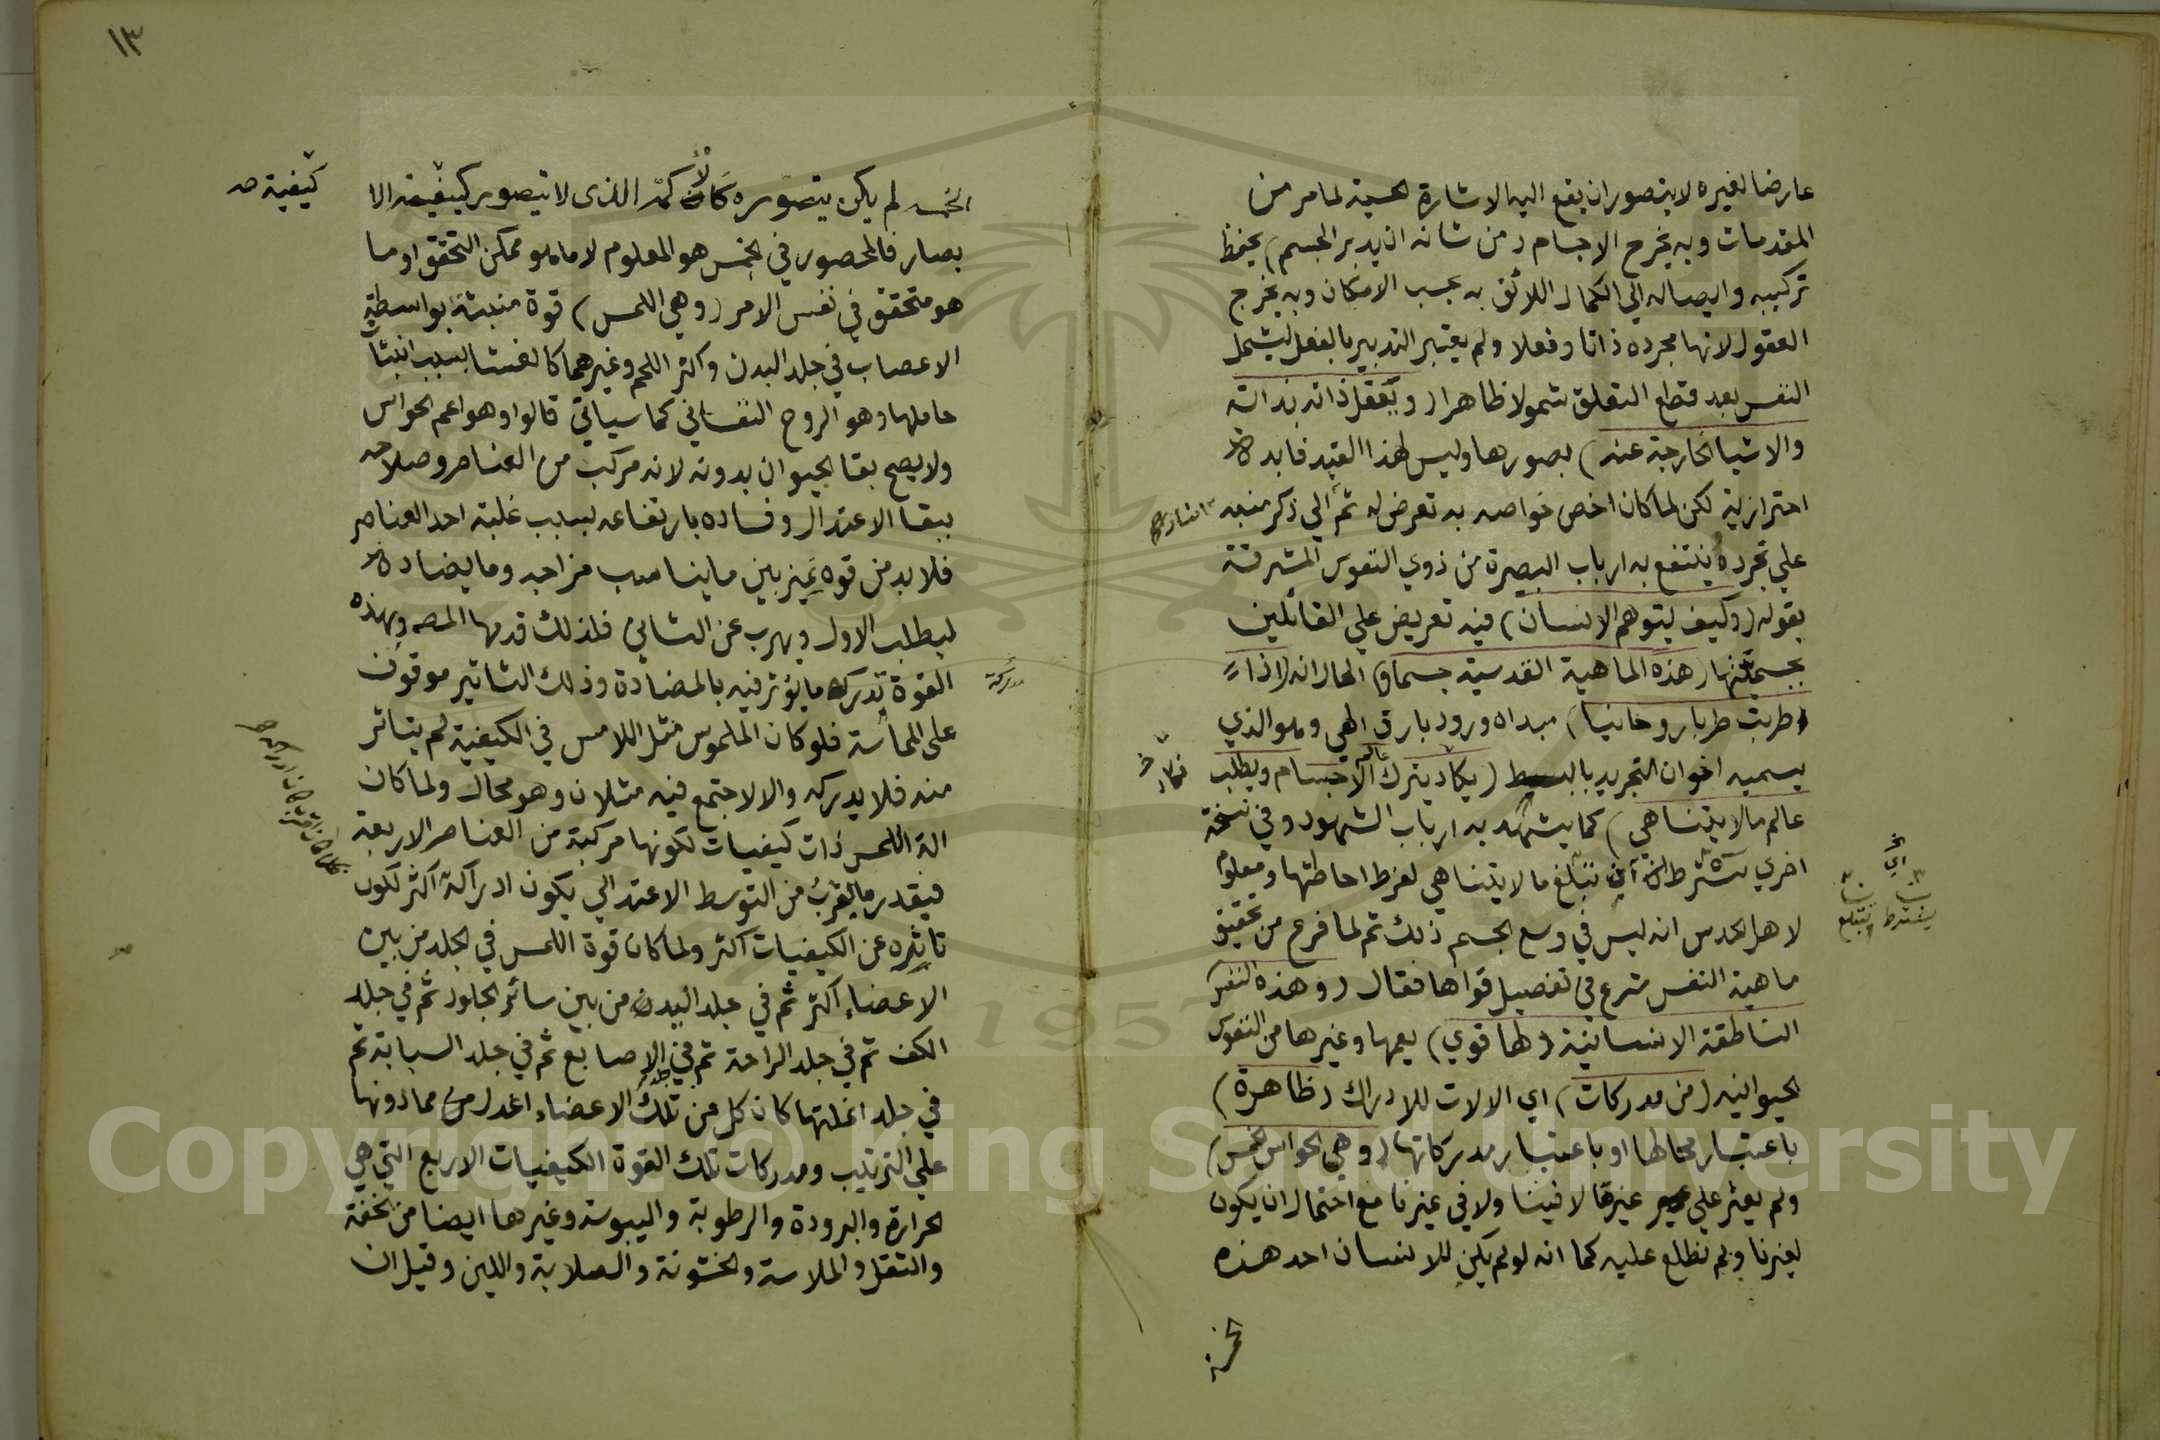 عارضا لغيره لا يتصور ان يقع اليه الاشارة الحسية لما مر من
المقدمات وبه يخرج الاجسام (من شانه ان يدبر الجسم) يحفظ
تركيبه وايصاله الي الكمال اللائق به بحسب الامكان وبه يخرج
العقول لانها مجرده ذاتا وفعلا ولم يعتبر التدبير بالفعل ليشمل
النفس بعد قطع التعلق شمولا ظاهرا (ويعقل ذاته بذاته
والاشيا الخارجة عنه) بصورها وليس لهذا القيد فايدة
احترازية لكن لما كان اخص خواصه به تعرض له ثم الي ذكر منبه
اشار
علي تجرده ينتفع به ارباب البصيرة من ذوي النفوس المشرقة
بقوله (وكيف يتوهم الانسان) فيه تعريض علي القائلين
بجسميتها (هذه الماهية القدسية جسما و) الحال انه (اذا
طربت طربا روحانيا) مبداه ورود بارق الهي وهو الذي
يسميه اخوان التجريد بالبسط (يكاد يترك عالم الاجسام ويطلب
عالم ما لا يتناهي) كما يشهد به ارباب الشهود وفي نسخة
اخري تشترط ان تبلغ ما لا يتناهي لفرط احاطتها ومعلوم
لاهل الحدس انه ليس في وسع الجسم ذلك ثم لما فرع من تحقيق
ماهية النفس شرع في تفصيل قواها فقال (وهذه النفس
الناطقة الانسانية (لها قوي) يعمها وغيرها من النفوس
الحيوانيه (من مدركات) اي الالات للادراك (ظاهرة)
باعتبار محالها او باعتبار مدركاتها (وهي الحواس الخمس)
ولم يعثر علي غيرها لا فينا ولا في غيرنا مع احتمال ان يكون
لغيرنا ولم نطلع عليه كما انه لو لم يكن للانسان احد هذه
الخمسة
١٣
الخمسه لم يكن يتصوره كالاكمه الذي لا يتصور كيفية الا
كيفية صح
بصار فالمحصور في الخمس هو المعلوم لا ما هو ممكن التحقق او ما
هو متحقق في نفس الامر (وهي اللمس) قوة منبثة بواسطة
الاعصاب في جلد البدن واكثر اللحم وغيرهما كالغشا بسبب انبثاث
حاملها وهو الروح النفساني كما سياتي قالوا وهو اعم الحواس
ولا يصح بقا الحيوان بدونه لانه مركب من العناصر وصلاحه
ببقا الاعتدال وفساده بارتفاعه بسبب غلبة احد العناصر
فلا بد من قوه تميز بين ما يناسب مزاجه وما يضاده
ليطلب الاول ويهرب عن الثاني فلذلك قدمها المصه وبهذه
القوة تدرك ما يؤثر فيه بالمضادة وذلك التاثير موقوف
مدركة
علي المماسة فلو كان الملموس مثل اللامس في الكيفية لم يتاثر
منه فلا يدركه والا لاجتمع فيه مثلان وهو محال ولما كان
الة اللمس ذات كيفيات لكونها مركبة من العناصر الاربعة
فبقدر ما يقرب من التوسط الاعتدالي يكون ادراكه اكثر لكون
تاثره عن الكيفيات اكثر ولما كان قوة اللمس في الجلد من بين
الاعضاء اكثر ثم في جلد اليد من بين سائر الجلود ثم في جلد
الكف ثم في جلد الراحة ثم في الاصابع ثم في جلد السبابة ثم
في جلد انملتها كان كل من تلك الاعضاء اعدل من مما دونها
علي الترتيب ومدركات تلك القوة الكيفيات الاربع التي هي
الحرارة والبرودة والرطوبة واليبوسة وغيرها ايضا من الخفة
والثقل والملاسة والخشونة والصلابة واللين وقيل ان
Copyright © King Saud University
1957